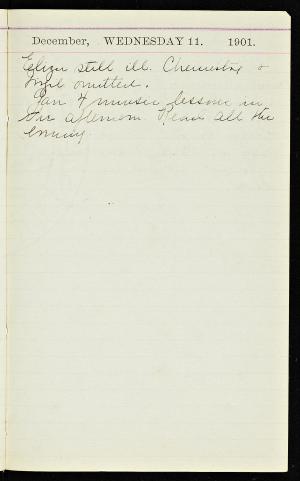 December, WEDNESDAY 11. 1901.
still ill. Chemistry &
omitted.
4 music lessons in
the afternoon. Read all the
evening.